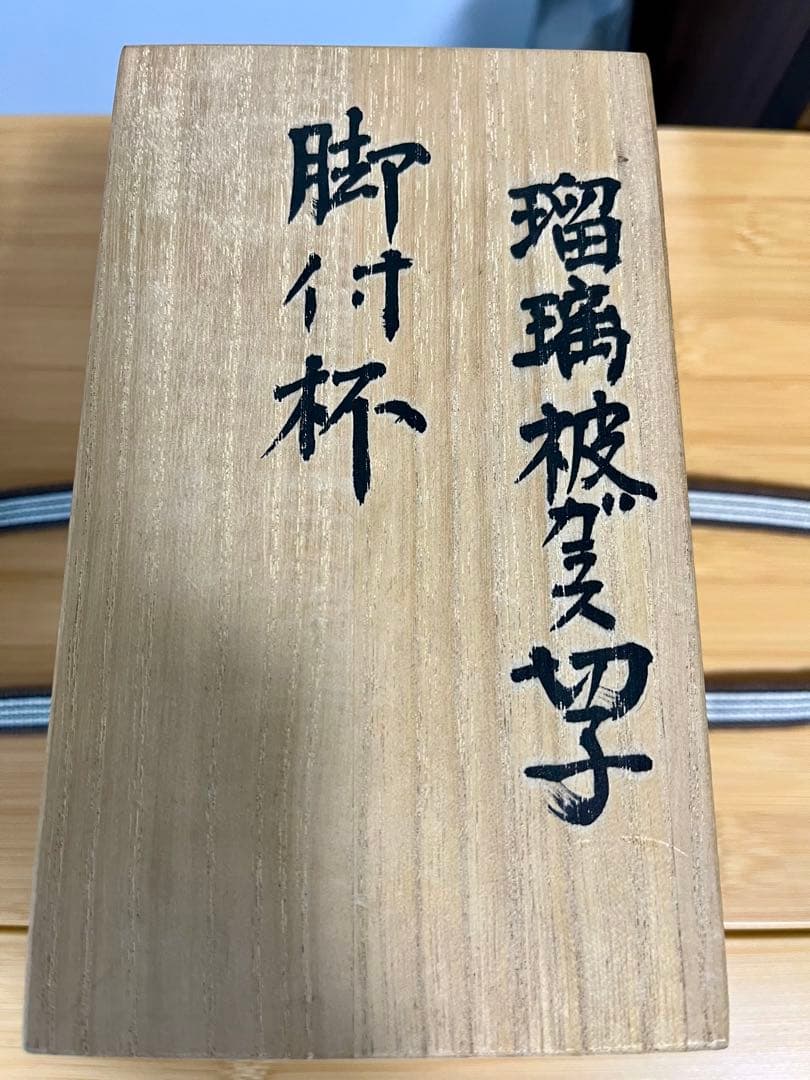 瑠璃被ガラス切子
脚付杯